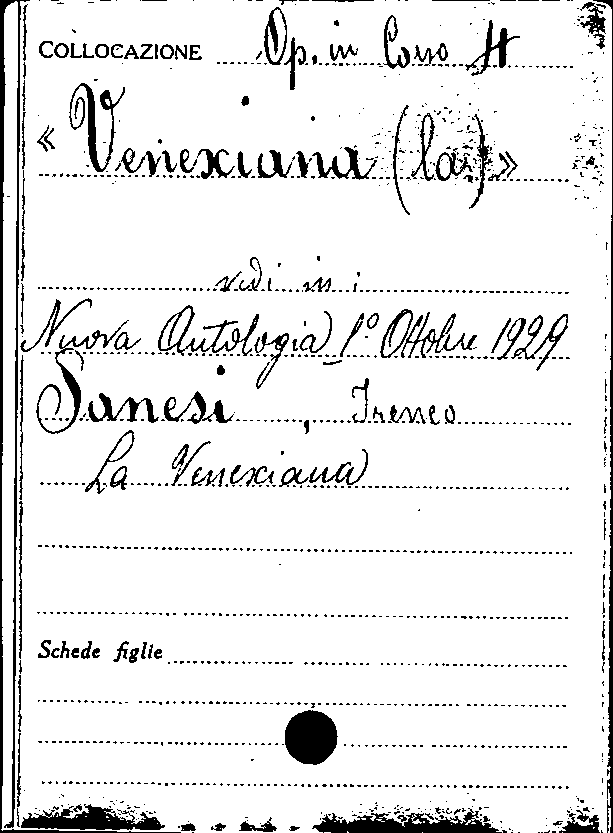 COLLOCAZIONE Op. in Corso H
« Venexiana (la) »
vedi in :
Nuova Antologia 1° Ottobre 1929
Sanesi, Ireneo
La Venexiana
Schede figlie